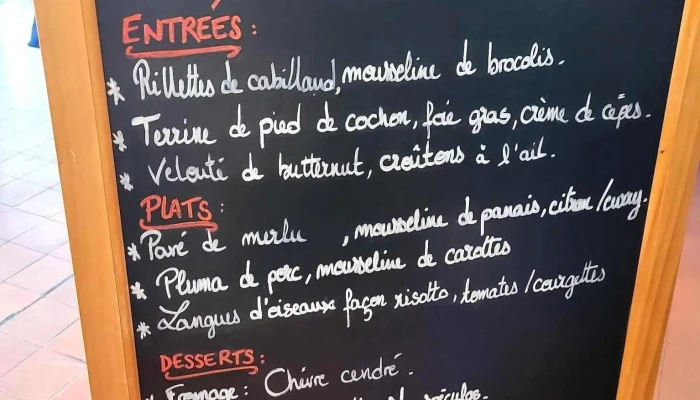 ENTRÉES :
* Rillettes de cabillaud, mousseline de brocolis.
* Terrine de pied de cochon, foie gras, crème de cêpes.
* Velouté de butternut, croûtons à l'ail.
PLATS :
* Pavé de merlu , mousseline de panais, citron/curry.
* Pluma de porc, mousseline de carottes
* Langues d'oiseaux façon risotto, tomates/courgettes
DESSERTS :
* Fromage : Chèvre cendré.
spéculos.